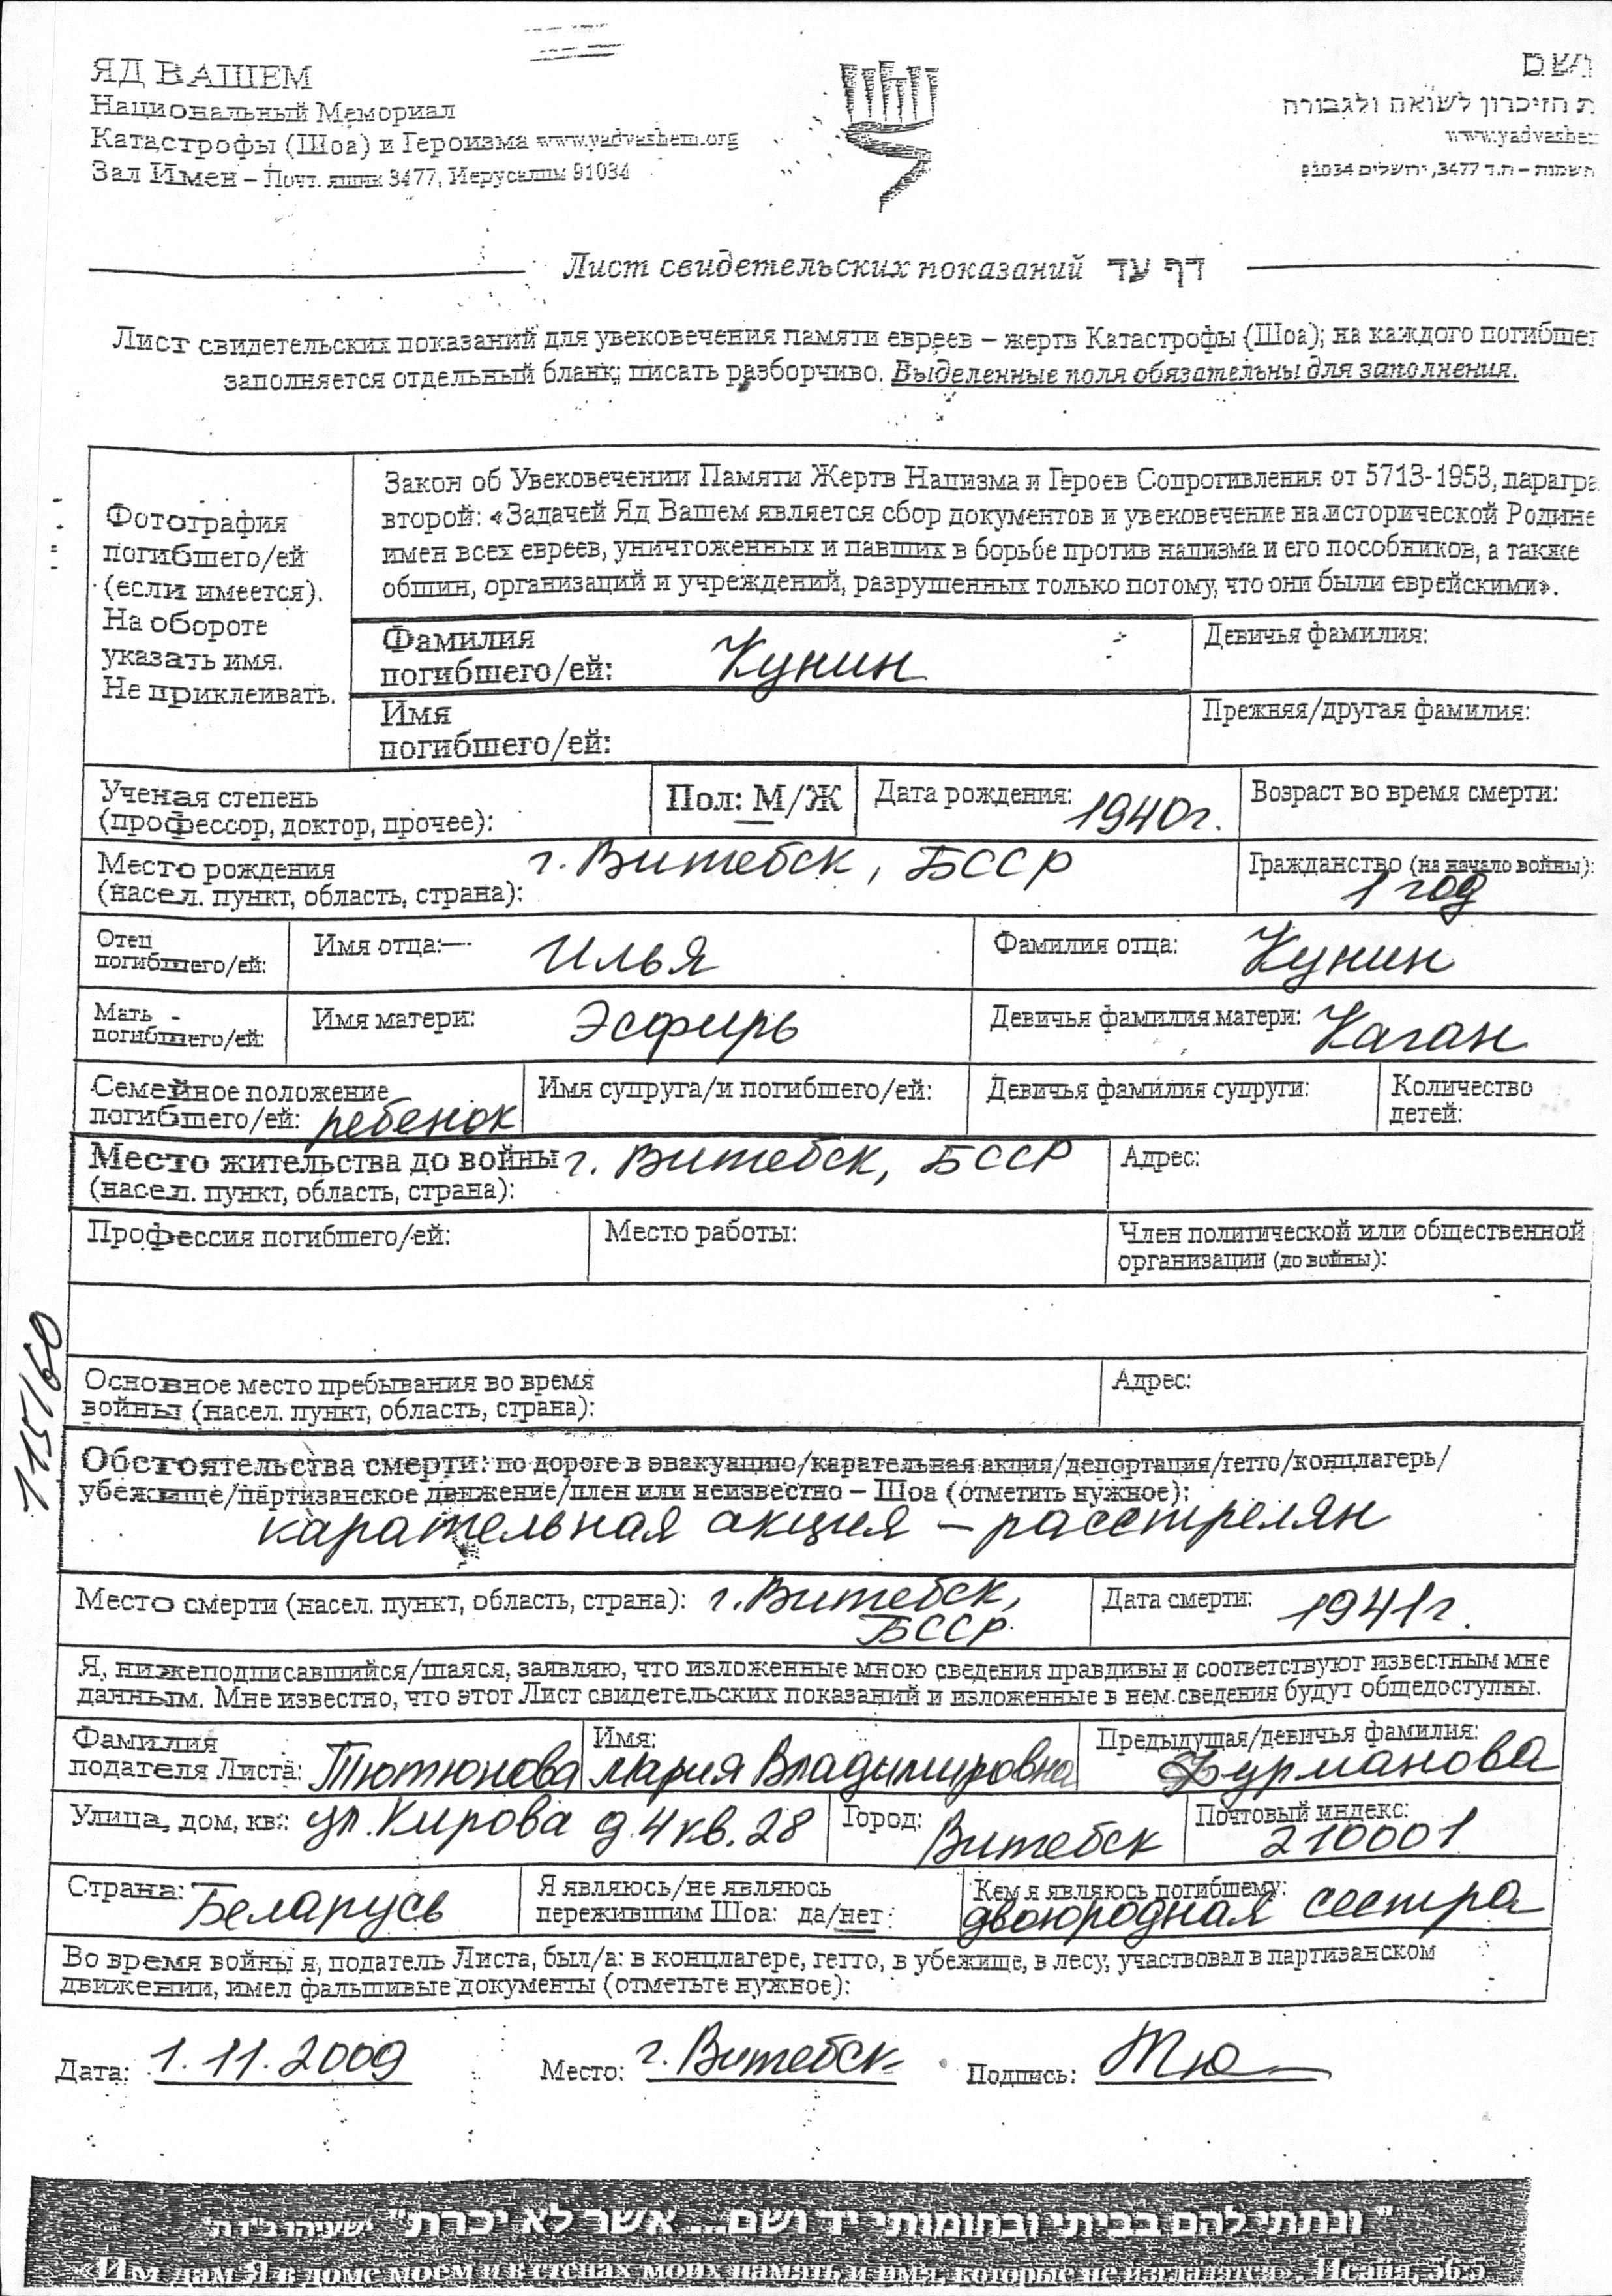 ЯД ВАШЕМ
Национальный Мемориал
Катастрофы (Шоа) и Героизма www.yadvashem.org
Зал Имен – Почт. ящик 3477, Иерусалим 91034
ושם
ת הזיכרון לשואה ולגבורה
www.yadvashem
השמות – ת.ד 3477, ירושלים 91034
Лист свидетельских показаний דף עד
Лист свидетельских показаний для увековечения памяти евреев – жертв Катастрофы (Шоа); на каждого погибшег
заполняется отдельный бланк; писать разборчиво. Выделенные поля обязательны для заполнения.
Фотография
погибшего/ей
(если имеется).
На обороте
указать имя.
Не приклеивать.
Закон об Увековечении Памяти Жертв Нацизма и Героев Сопротивления от 5713-1953, парагра
второй: «Задачей Яд Вашем является сбор документов и увековечение на исторической Родине
имен всех евреев, уничтоженных и павших в борьбе против нацизма и его пособников, а также
общин, организаций и учреждений, разрушенных только потому, что они были еврейскими».
Фамилия
погибшего/ей: Кунин
Девичья фамилия:
Имя
погибшего/ей:
Прежняя/другая фамилия:
Ученая степень
(профессор, доктор, прочее):
Пол: М/Ж
Дата рождения: 1940г.
Возраст во время смерти:
Место рождения г. Витебск, БССР
(насел. пункт, область, страна):
Гражданство (на начало войны):
1 год
Отец
погибшего/ей:
Имя отца: Илья
Фамилия отца: Кунин
Мать
погибшего/ей:
Имя матери: Эсфирь
Девичья фамилия матери: Каган
Семейное положение
погибшего/ей: ребенок
Имя супруга/и погибшего/ей:
Девичья фамилия супруги:
Количество
детей:
Место жительства до войны г. Витебск, БССР
(насел. пункт, область, страна):
Адрес:
Профессия погибшего/ей:
Место работы:
Член политической или общественной
организации (до войны):
115/60
Основное место пребывания во время
войны (насел. пункт, область, страна):
Адрес:
Обстоятельства смерти: по дороге в эвакуацию/карательная акция/депортация/гетто/концлагерь/
убежище/партизанское движение/плен или неизвестно – Шоа (отметить нужное):
карательная акция – расстрелян
Место смерти (насел. пункт, область, страна): г. Витебск,
БССР.
Дата смерти: 1941г.
Я, нижеподписавшийся/шаяся, заявляю, что изложенные мною сведения правдивы и соответствуют известным мне
данным. Мне известно, что этот Лист свидетельских показаний и изложенные в нем сведения будут общедоступны.
Фамилия
подателя Листа: Тютюнова
Имя:
Мария Владимировна
Предыдущая/девичья фамилия:
Фурманова
Улица, дом, кв.: ул. Кирова д.4 кв.28
Город: Витебск
Почтовый индекс:
210001
Страна: Беларусь
Я являюсь/не являюсь
пережившим Шоа: да/нет:
Кем я являюсь погибшему:
двоюродная сестра
Во время войны я, податель Листа, был/а: в концлагере, гетто, в убежище, в лесу, участвовал в партизанском
движении, имел фальшивые документы (отметьте нужное):
Дата: 1.11.2009 Место: г. Витебск Подпись: Тю
"ונתתי להם בביתי ובחומותי יד ושם... אשר לא יכרת" ישעיהו נ"ו ה'
«Им дам Я в доме моем и в стенах моих память и имя, которые не изгладятся». Исайя, 56:5